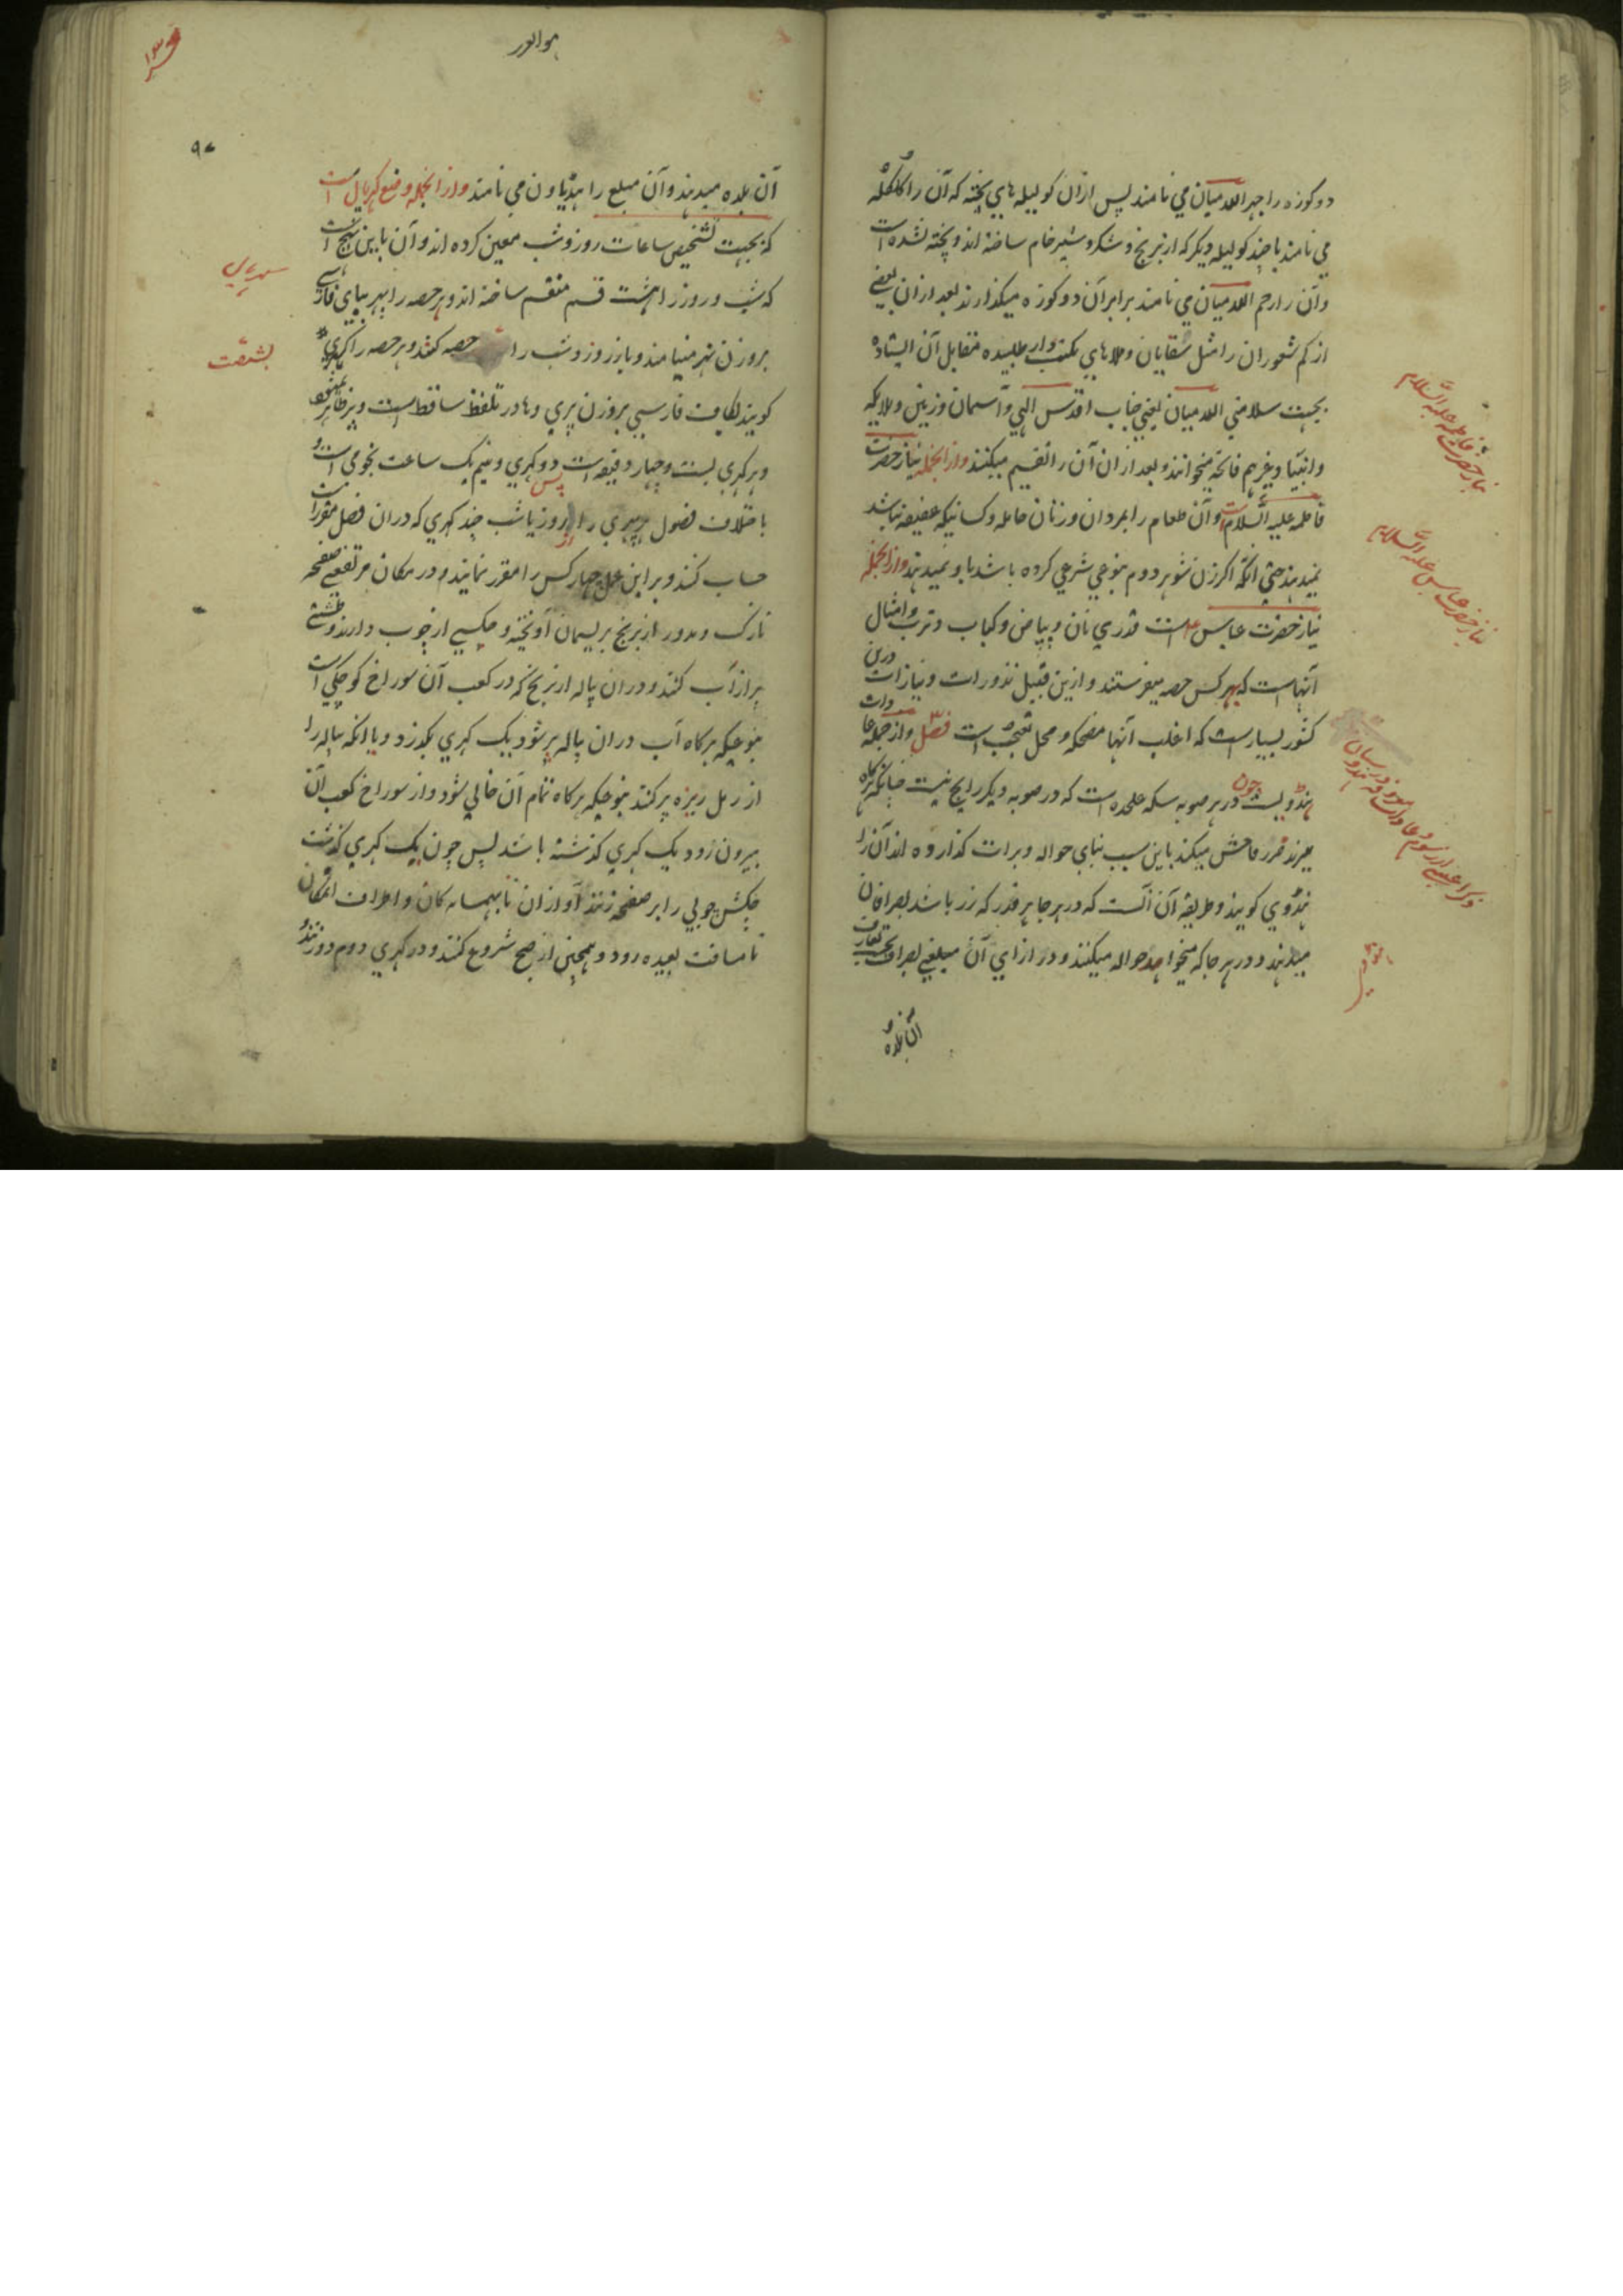 دو کوزه را جهر اللدمیان می نامند پس ازان کولیله های پخته که آن را گلگله
می نامند با چند کولیله دیگر که از برنج و شکر و شیر خام ساخته اند و پخته نشده است
و آن را رحم اللدمیان می نامند برابر آن دو کوزه میگذارند بعد ازان بعضی
از کم شعوران را مثل سقایان و ملاهای مکتب دار طلبیده مقابل آن ایستاده
بجهت سلامتی اللدمیان یعنی جناب اقدس الهی و آسمان و زمین و ملایکه
و انبیا و غیرهم فاتحه میخوانند و بعد ازان آن را تقسیم میکنند و ازانجمله نیاز حضرت
فاطمه علیه السلام است و آن طعام را بمردان و زنان حامله و کسانیکه عفیفه نباشد
نمیدهند حتی انکه اکر زن شوهر دوم بنوعی شرعی کرده باشد باو نمیدهند و ازانجمله
نیاز حضرت عباس است قدری نان و پیاض و کباب و ترب و امثال
آنهاست که بهر کس حصه میفرستند و ازین قبیل نذورات و نیازات درین
کشور بسیارست که اغلب آنها مضحکه و محل تعجب است فصل و از جمله عادات
هندویست چون در هر صوبه سکه علحده است که در صوبه دیکر رایج نیست چنانکه هرکاه
میبرند ضرر فاحش میکند باین سبب بنای حواله و برات گذارده اند آن را
هندوی کویند و طریقه آن آنست که در هر جا هر قدر که زر باشد بصرافان
میدهند و در هر جا که میخواهند حواله میکنند و در ازای آن مبلغی بصراف بحسب تعارف
آن بلده
نیاز حضرت فاطمه علیه السلام
نیاز حضرت عباس علیه السلام
ذکر بعضی از رسوم و عادات هنود
هندوی
هوالور
۹۷
آن بلده میدهند و آن مبلغ را هندیاون می نامند و ازانجمله وضع کهریال است
که بجهت تشخیص ساعات روز و شب معین کرده اند و آن باین نهج است
که شب و روز را هشت قسم منقسم ساخته اند و هر حصه را پهر ببای فارسی
بروزن نهر مینامند و باز روز و شب را حصه کنند و هر حصه را کهری
کویند بکاف فارسی بروزن پری و ها در تلفظ ساقط است
و هر کهری بست و چهار دقیقه است دو کهری و نیم یک ساعت نجومی است و
باختلاف فصول هر پهری را از روز یا شب چند کهری که دران فصل مقرر است
حساب کنند و بر این عمل چهار کس را مقرر نمایند و در مکان مرتفعی صفحه
نازک و مدور از برنج بریسمان آویخته و چکشی از چوب دارند و طشتی
پر از آب کنند و دران پیاله از برنج که در کعب آن سوراخ کوچکی است
بنوعیکه هرکاه آب دران پیاله پر شود یک کهری بگذرد و یا انکه پیاله را
از رمل ریزه پر کنند بنوعیکه هرکاه تمام آن خالی شود و از سوراخ کعب آن
بیرون رود یک کهری گذشته باشد پس چون یک کهری گذشت
چکش چوبی را بر صفحه زنند آواز ان تا بهمسایه کان و اطراف امکان
تا مسافت بعیده رود و همچنین از صبح شروع کنند و در کهری دوم دو زنند و